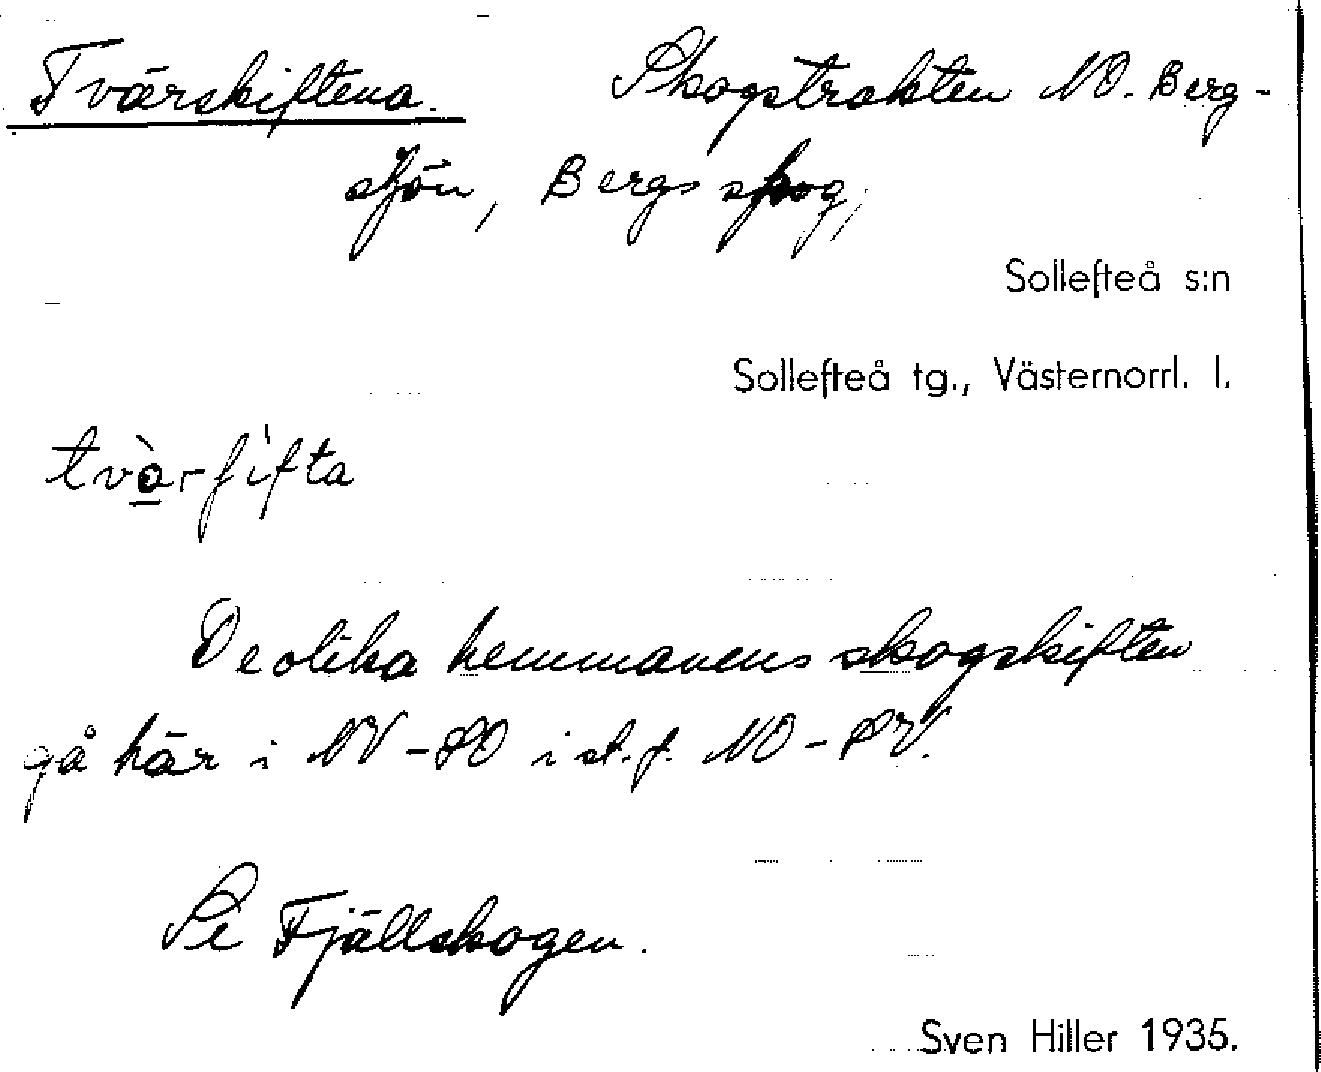 Tvärskiftena. Skogstrakten NO. Berg-
sjön, Bergs skog,
Sollefteå s:n
Sollefteå tg., Västernorrl. l.
tvàrʃifta
De olika hemmanens skogskiften
gå här i NV-SO i st. f. NO-SV.
Se Fjällskogen.
Sven Hiller 1935.